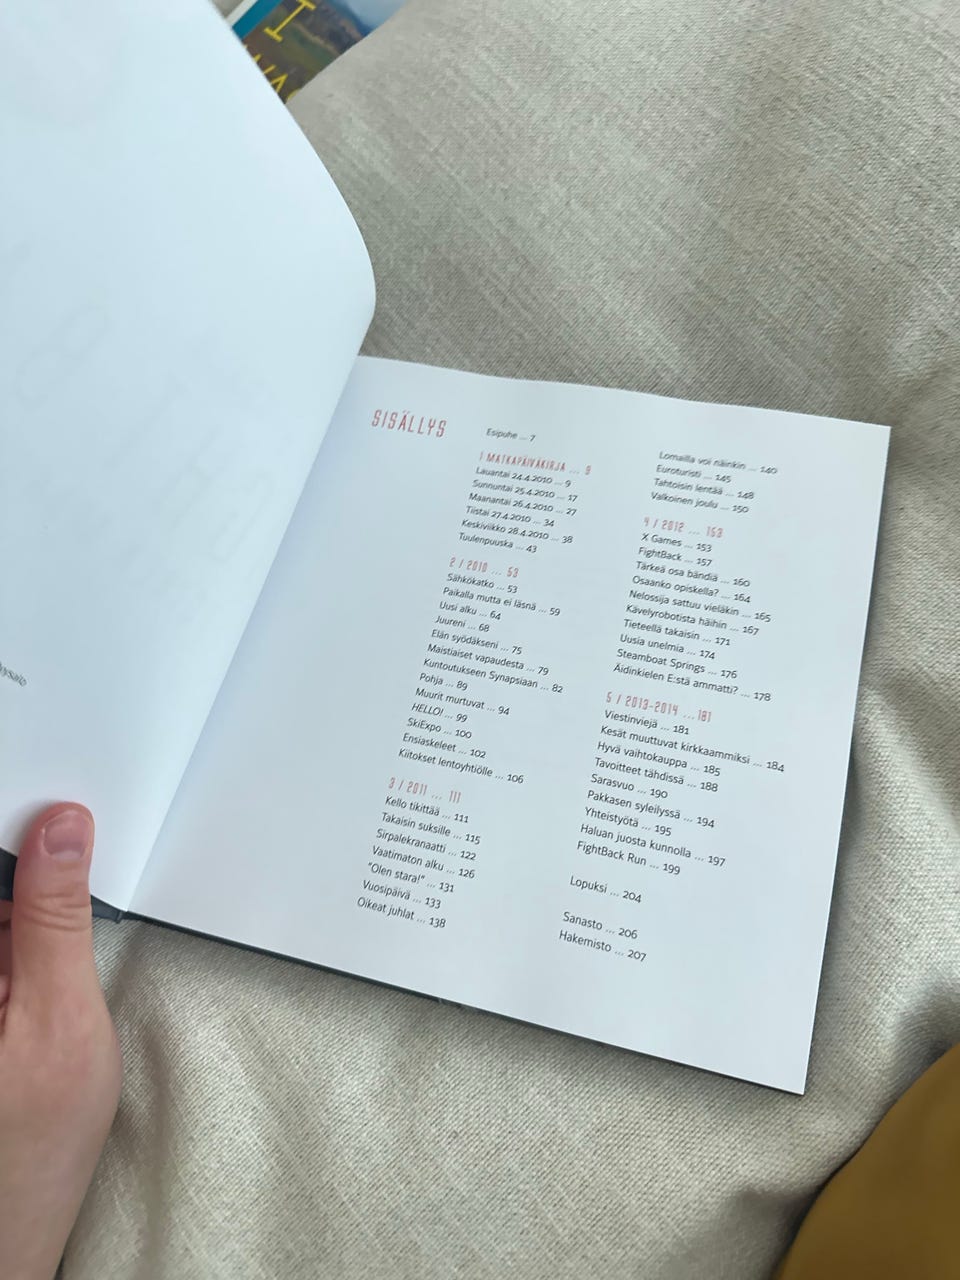 SISÄLLYS
Esipuhe ... 7
1 MATKAPÄIVÄKIRJA ... 9
Lauantai 24.4.2010 ... 9
Sunnuntai 25.4.2010 ... 17
Maanantai 26.4.2010 ... 27
Tiistai 27.4.2010 ... 34
Keskiviikko 28.4.2010 ... 38
Tuulenpuuska ... 43
2 / 2010 ... 53
Sähkökatko ... 53
Paikalla mutta ei läsnä ... 59
Uusi alku ... 64
Juureni ... 68
Elän syödäkseni ... 75
Maistiaiset vapaudesta ... 79
Kuntoutukseen Synapsiaan ... 82
Pohja ... 89
Muurit murtuvat ... 94
HELLO! ... 99
SkiExpo ... 100
Ensiaskeleet ... 102
Kiitokset lentoyhtiölle ... 106
3 / 2011 ... 111
Kello tikittää ... 111
Takaisin suksille ... 115
Sirpalekranaatti ... 122
Vaatimaton alku ... 126
"Olen stara!" ... 131
Vuosipäivä ... 133
Oikeat juhlat ... 138
Lomailla voi näinkin ... 140
Euroturisti ... 145
Tahtoisin lentää ... 148
Valkoinen joulu ... 150
4 / 2012 ... 153
X Games ... 153
FightBack ... 157
Tärkeä osa bändiä ... 160
Osaanko opiskella? ... 164
Nelossija sattuu vieläkin ... 165
Kävelyrobotista häihin ... 167
Tieteellä takaisin ... 171
Uusia unelmia ... 174
Steamboat Springs ... 176
Äidinkielen E:stä ammatti? ... 178
5 / 2013-2014 ... 181
Viestinviejä ... 181
Kesät muuttuvat kirkkaammiksi ... 184
Hyvä vaihtokauppa ... 185
Tavoitteet tähdissä ... 188
Sarasvuo ... 190
Pakkasen syleilyssä ... 194
Yhteistyötä ... 195
Haluan juosta kunnolla ... 197
FightBack Run ... 199
Lopuksi ... 204
Sanasto ... 206
Hakemisto ... 207